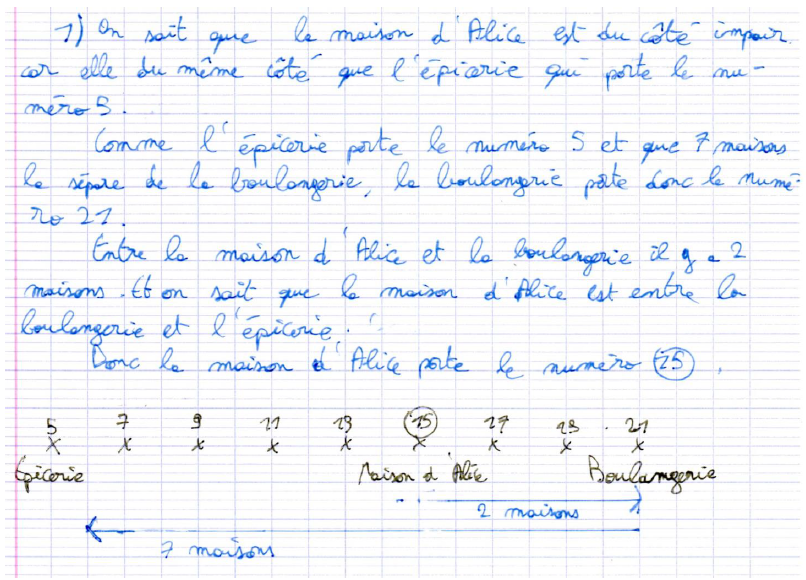 1) On sait que la maison d'Alice est du côté impair
car elle du même côté que l'épicerie qui porte le nu-
méro 5.
Comme l'épicerie porte le numéro 5 et que 7 maisons
la sépare de la boulangerie, la boulangerie porte donc le numé-
ro 21.
Entre la maison d'Alice et la boulangerie il y a 2
maisons. Et on sait que la maison d'Alice est entre la
boulangerie et l'épicerie.
Donc la maison d'Alice porte le numéro 15.
5 7 9 11 13 15 17 19 21
x x x x x x x x x
Epicerie Maison d'Alice Boulangerie
2 maisons
7 maisons